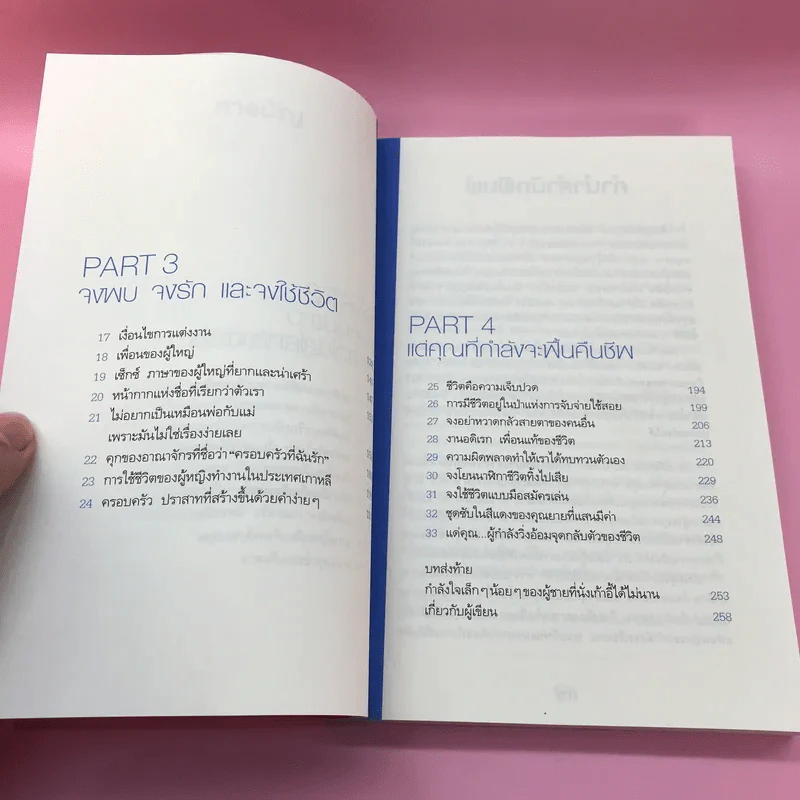 PART 3
จงพบ จงรัก และจงใช้ชีวิต
17 เงื่อนไขการแต่งงาน
18 เพื่อนของผู้ใหญ่
19 เซ็กซ์ ภาษาของผู้ใหญ่ที่ยากและน่าเศร้า
20 หน้ากากแห่งชื่อที่เรียกว่าตัวเรา
21 ไม่อยากเป็นเหมือนพ่อกับแม่
เพราะมันไม่ใช่เรื่องง่ายเลย
22 คุกของอาณาจักรที่ชื่อว่า “ครอบครัวที่ฉันรัก”
23 การใช้ชีวิตของผู้หญิงทำงานในประเทศเกาหลี
24 ครอบครัว ปราสาทที่สร้างขึ้นด้วยคำง่ายๆ
PART 4
แด่คุณที่กำลังจะฟื้นคืนชีพ
25 ชีวิตคือความเจ็บปวด 194
26 การมีชีวิตอยู่ในป่าแห่งการจับจ่ายใช้สอย 199
27 จงอย่าหวาดกลัวสายตาของคนอื่น 206
28 งานอดิเรก เพื่อนแท้ของชีวิต 213
29 ความผิดพลาดทำให้เราได้ทบทวนตัวเอง 220
30 จงโยนนาฬิกาชีวิตทิ้งไปเสีย 229
31 จงใช้ชีวิตแบบมือสมัครเล่น 236
32 ชุดซับในสีแดงของคุณยายที่แสนมีค่า 244
33 แด่คุณ...ผู้กำลังวิ่งอ้อมจุดกลับตัวของชีวิต 248
บทส่งท้าย
กำลังใจเล็กๆน้อยๆของผู้ชายที่นั่งเก้าอี้ได้ไม่นาน 253
เกี่ยวกับผู้เขียน 258